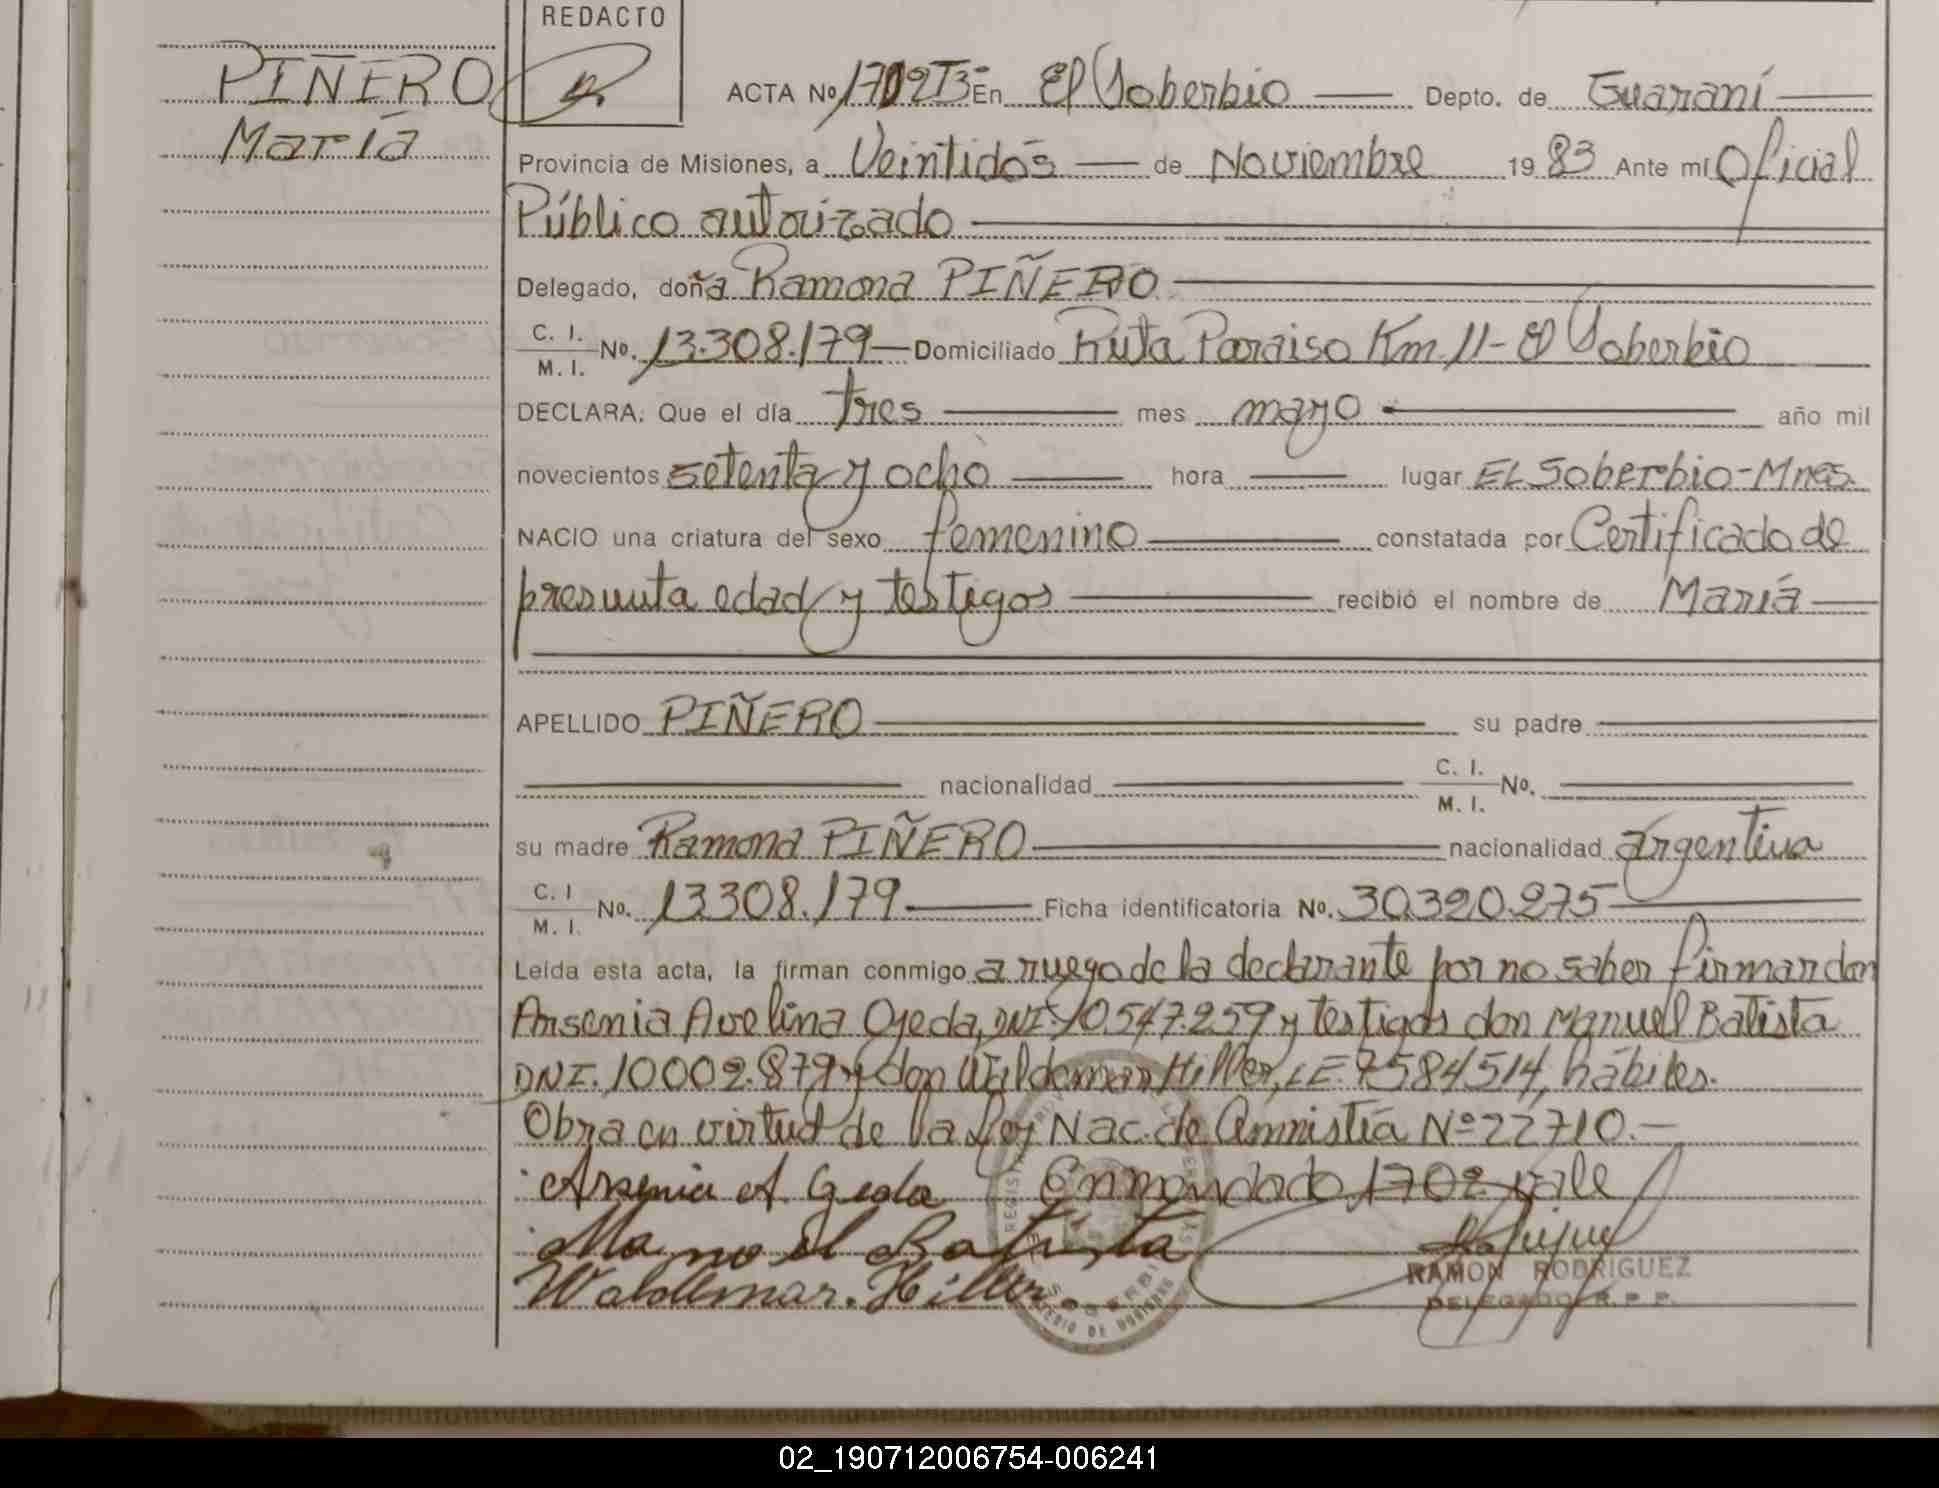 REDACTO
PIÑERO
María
ACTA Nº 1702 T3º En El Soberbio — Depto. de Guaraní —
Provincia de Misiones, a Veintidós — de Noviembre 1983 Ante mí Oficial
Público autorizado —
Delegado, doña Ramona PIÑERO —
C. I. / M. I. Nº. 13.308.179 — Domiciliado Ruta Paraiso Km 11 - El Soberbio
DECLARA: Que el día tres — mes mayo — año mil
novecientos setenta y ocho — hora — lugar EL Soberbio - Mnes.
NACIO una criatura del sexo femenino — constatada por Certificado de
presunta edad y testigos — recibió el nombre de María —
APELLIDO PIÑERO — su padre —
— nacionalidad — C. I. / M. I. Nº. —
su madre Ramona PIÑERO — nacionalidad argentina
C. I / M. I. Nº. 13308.179 — Ficha identificatoria Nº. 30.320.275 —
Leída esta acta, la firman conmigo a ruego de la declarante por no saber firmar don
Arsenia Avelina Ojeda, DNI. 10547.259 y testigos don Manuel Batista
DNI. 10002.879 y don Wildemar Hiller, LE. 7584514, hábiles.
Obra en virtud de la Ley Nac. de Amnistía Nº 22710.—
Arsenia A. Ojeda Enmendado 1702 vale
Manoel Batista
Waldemar. Hiller.
RAMON RODRIGUEZ
DELEGADO R. P. P.
02_190712006754-006241